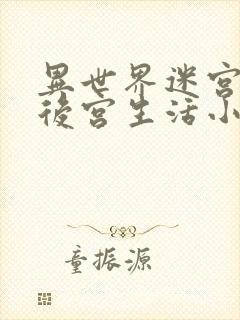 異世界迷宮
後宮生活小
童振源